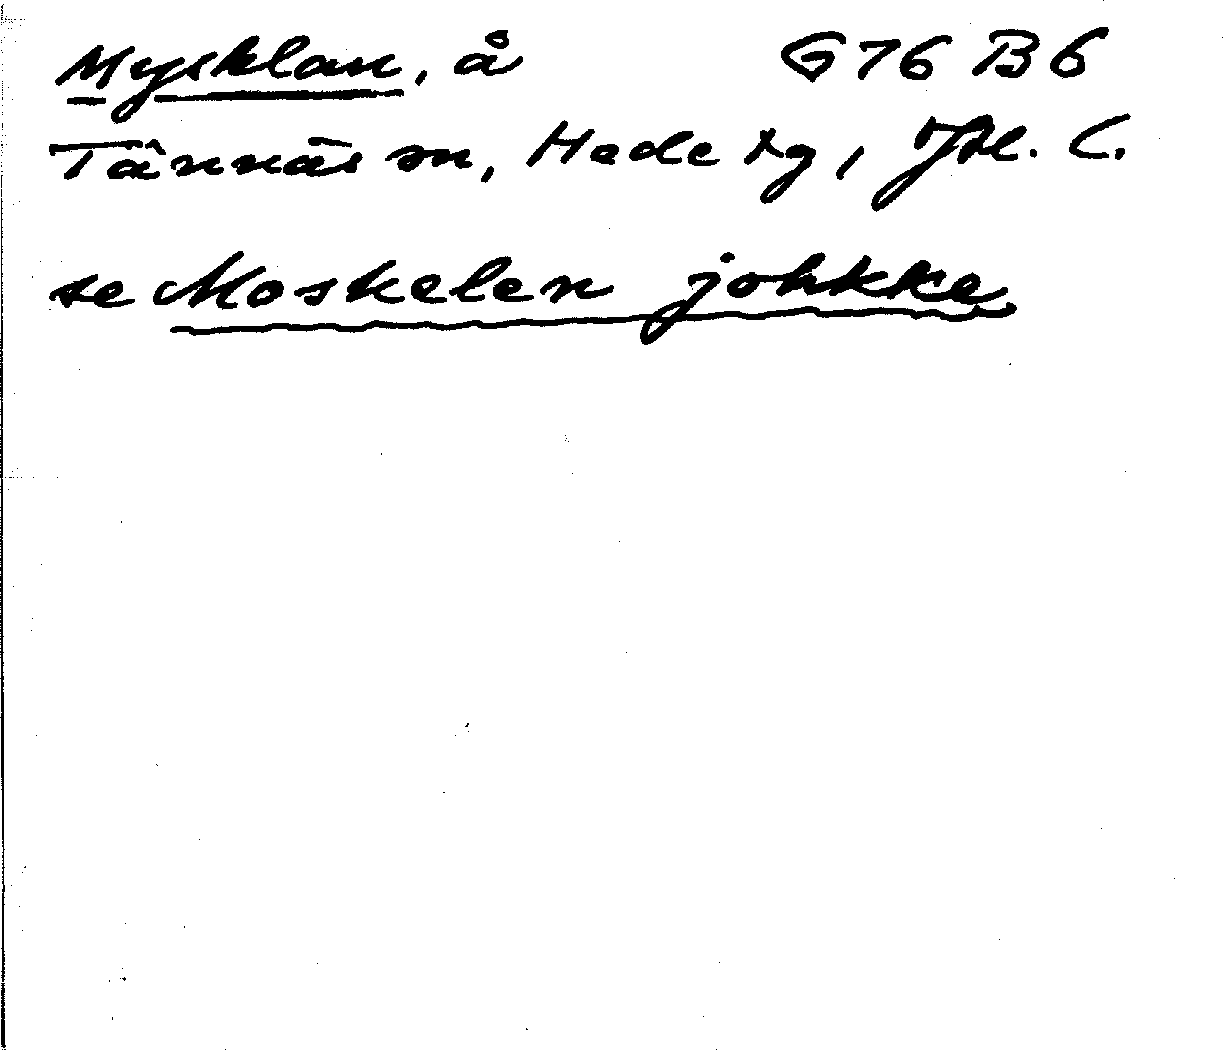 Mysklan, å G76 B6
Tännäs sn, Hede tg, Jtl. C.
se Moskelen johkke